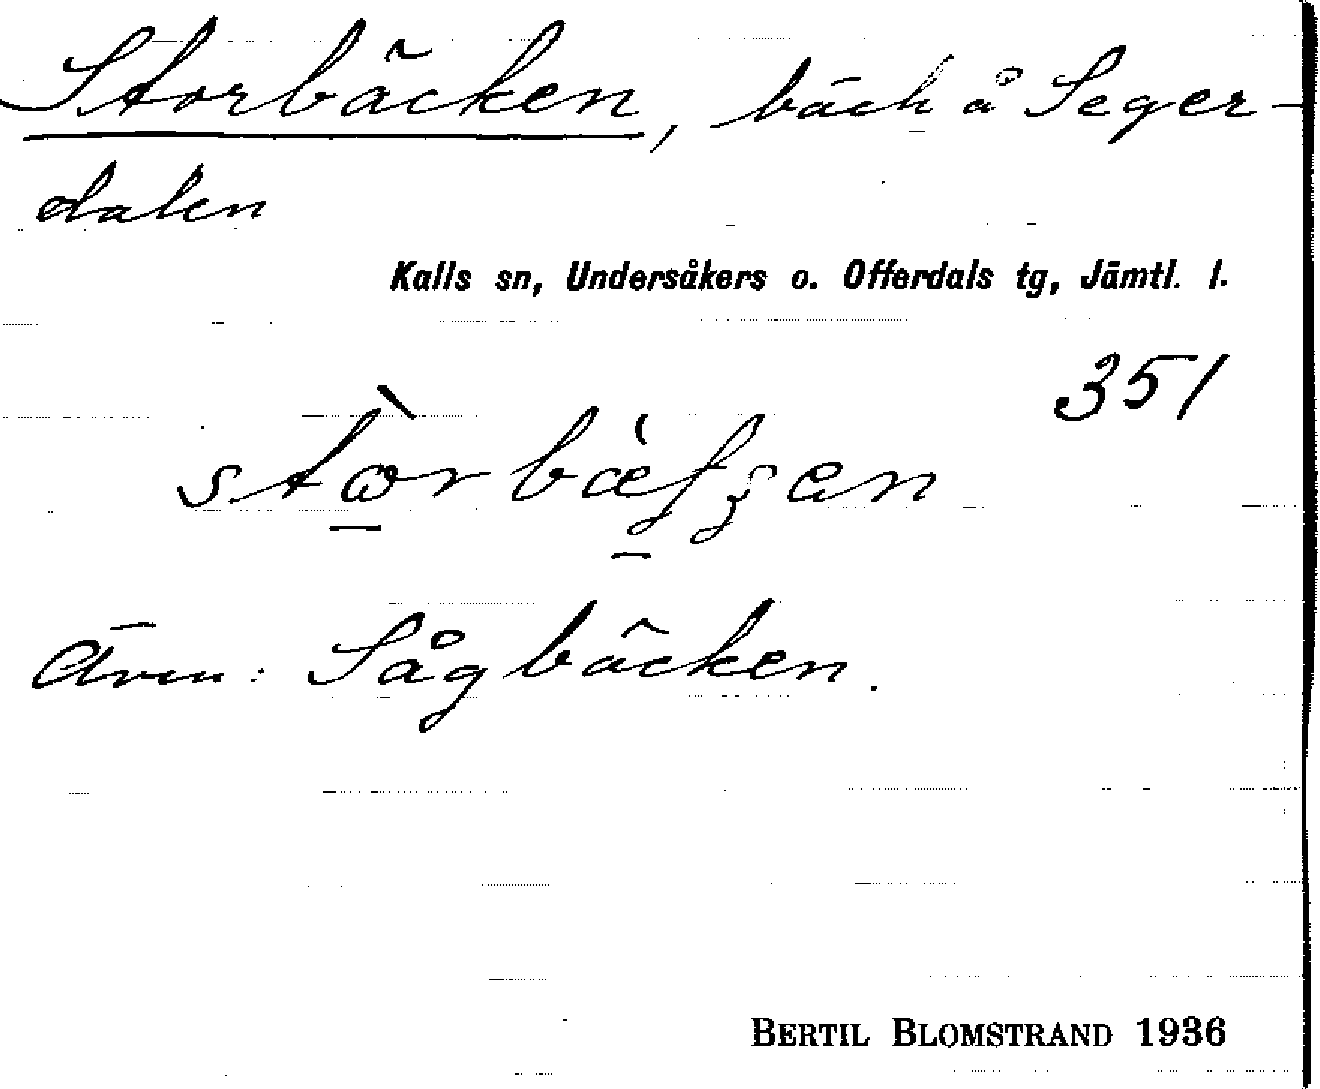 Storbäcken, bäck å Seger-
dalen
Kalls sn, Undersåkers o. Offerdals tg, Jämtl. l.
351
Även: Sågbäcken.
BERTIL BLOMSTRAND 1936